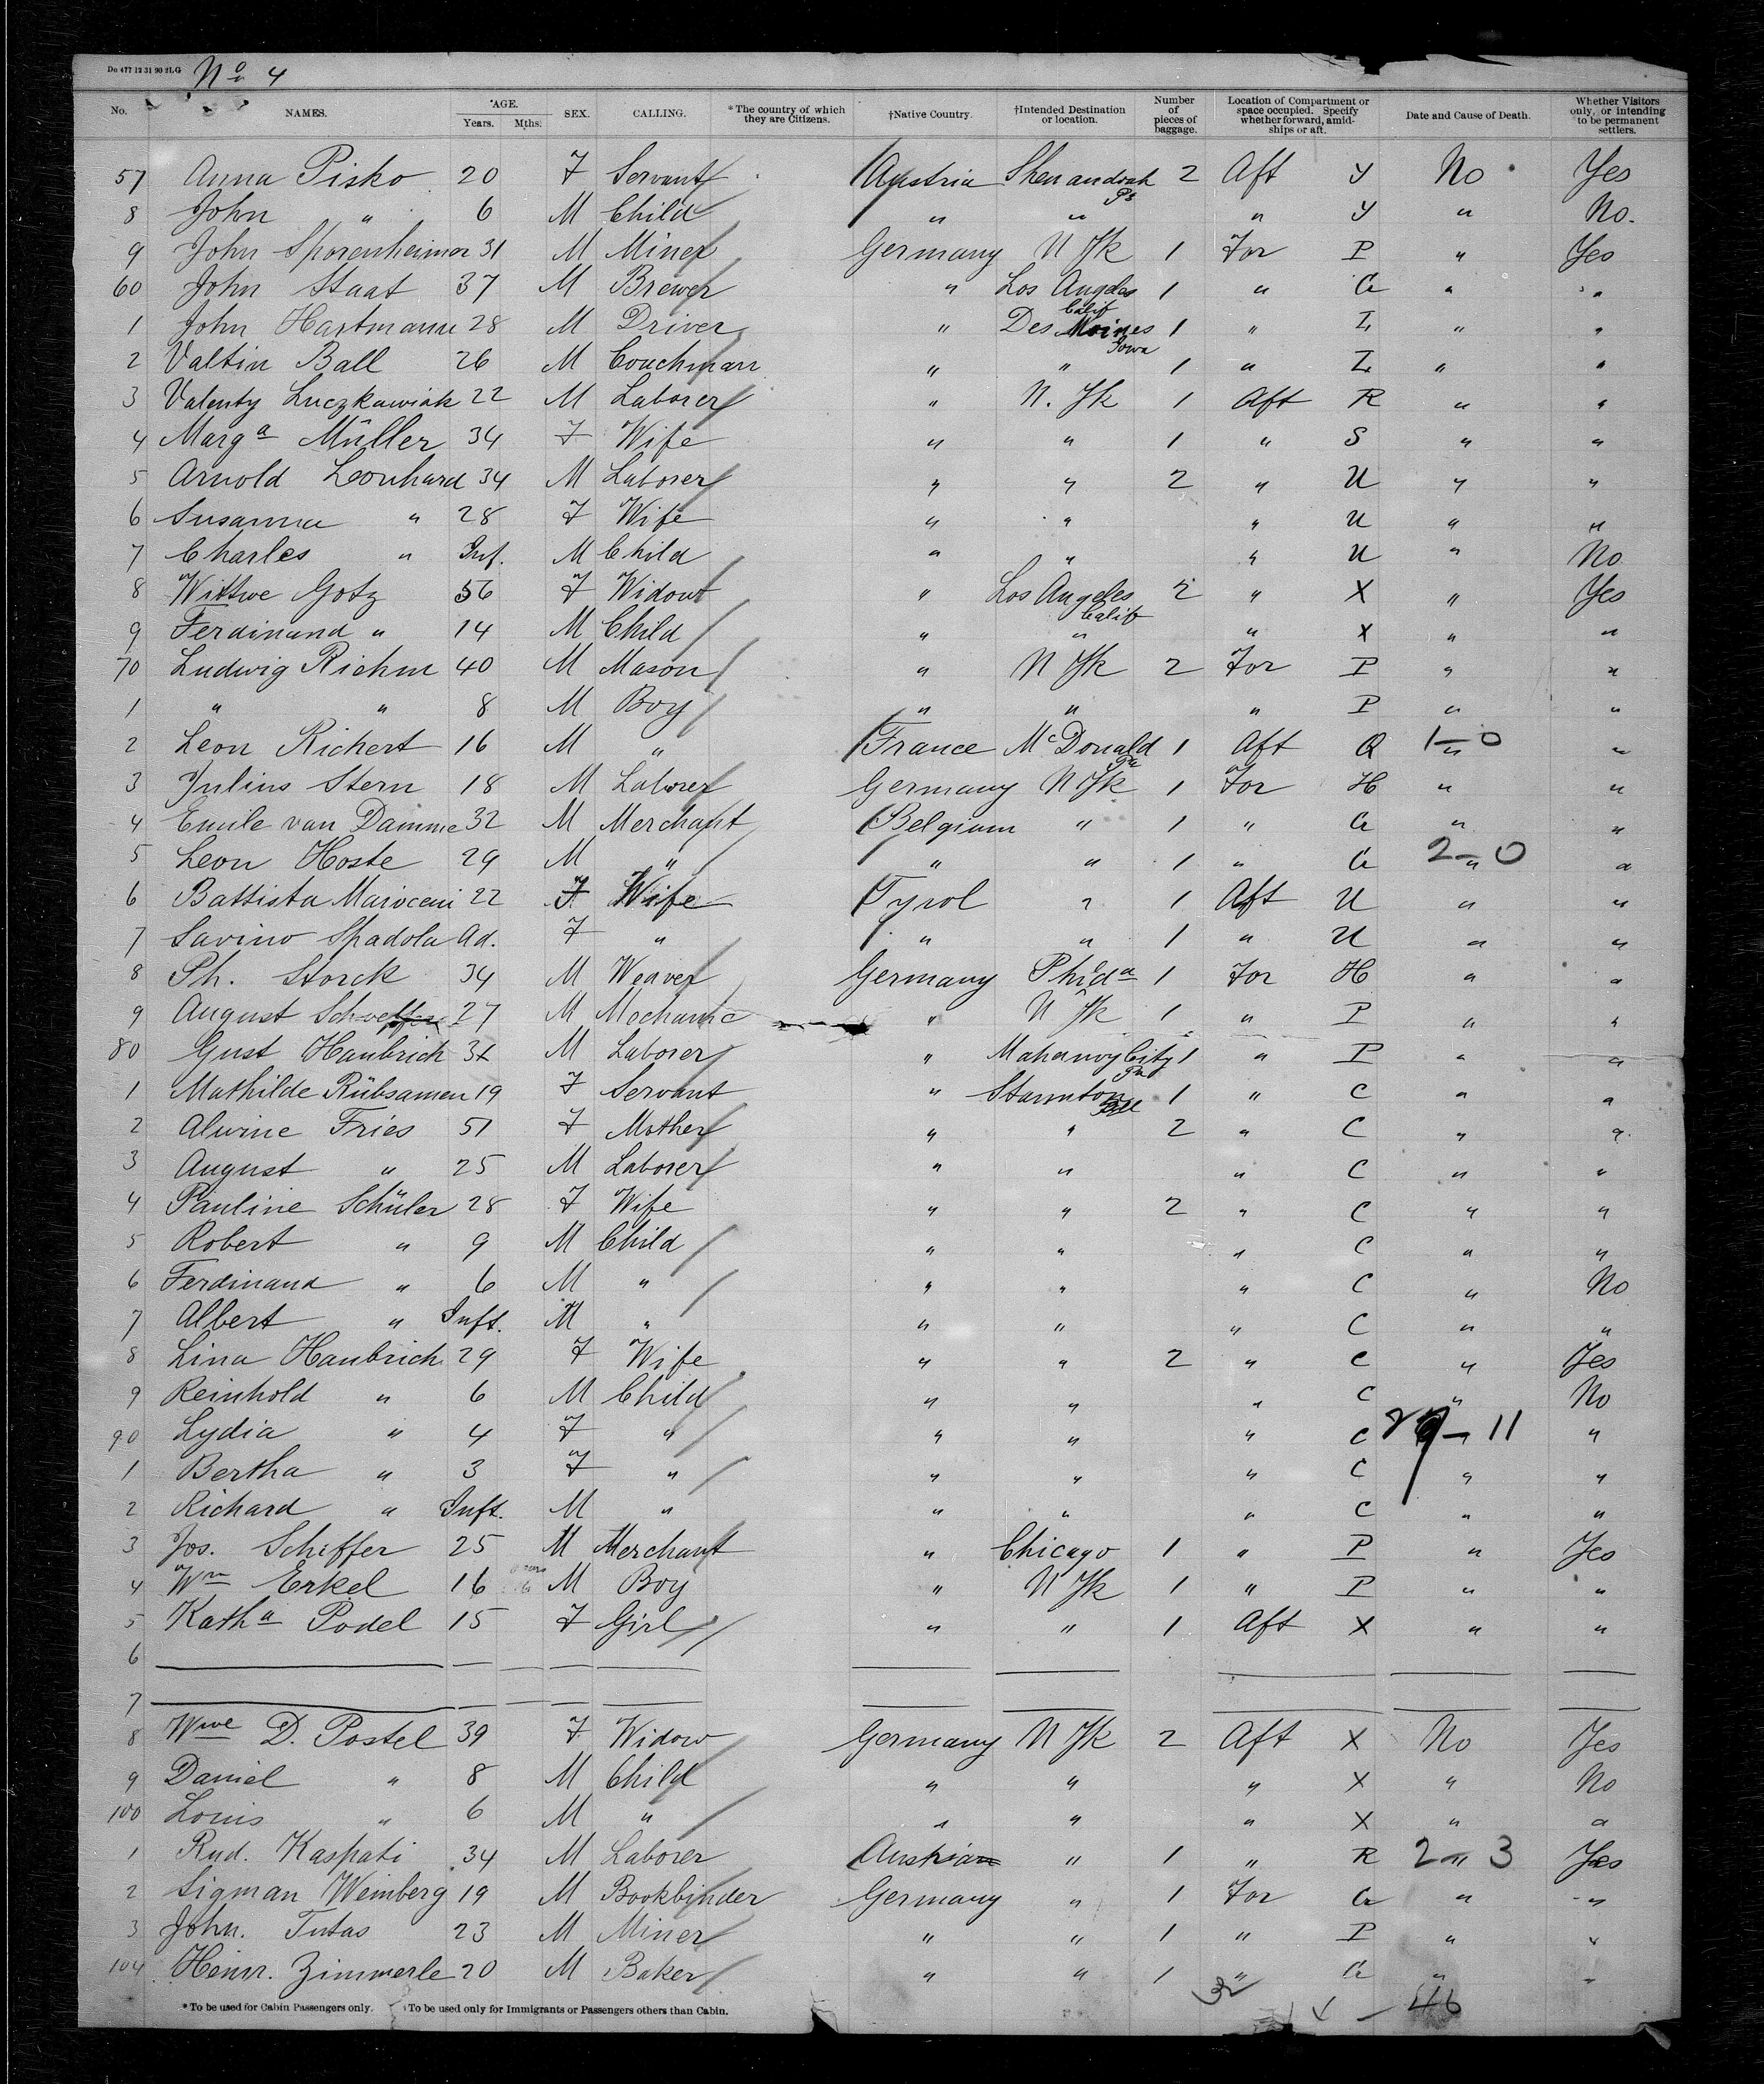 Do 477 12 31 90 2LG Nº 4
No. NAMES. AGE. Years. Mths. SEX. CALLING. *The country of which they are Citizens. †Native Country. †Intended Destination or location. Number of pieces of baggage. Location of Compartment or space occupied. Specify whether forward, amidships or aft. Date and Cause of Death. Whether Visitors only, or intending to be permanent settlers.
57 Anna Pisko 20 F Servant Austria Shenandoah Pa 2 Aft Y No Yes
8 John " 6 M Child " " " Y " No.
9 John Sporenheimer 31 M Miner Germany N Yk 1 For P " Yes
60 John Staat 37 M Brewer " Los Angeles Calif 1 " G " "
1 John Hartmann 28 M Driver " Des Moines Iowa 1 " I " "
2 Valtin Ball 26 M Coachman " " 1 " I " "
3 Valenty Luczkawiak 22 M Laborer " N. Yk 1 Aft R " "
4 Marga Müller 34 F Wife " " 1 " S " "
5 Arnold Leonhard 34 M Laborer " " 2 " U " "
6 Susanna " 28 F Wife " " " U " "
7 Charles " Inf. M Child " " " U " No
8 Wittwe Gotz 56 F Widow " Los Angeles Calif 2 " X " Yes
9 Ferdinand " 14 M Child " " " X " "
70 Ludwig Richm 40 M Mason " N Yk 2 For P " "
1 " " 8 M Boy " " " P " "
2 Leon Richert 16 M " France McDonald Pa 1 Aft Q 1–0 " "
3 Julius Stern 18 M Laborer Germany N Yk 1 For H " "
4 Emile van Damme 32 M Merchant Belgium " 1 " G " "
5 Leon Hoste 29 M " " " 1 " G 2–0 " "
6 Battista Marocani 22 F Wife Tyrol " 1 Aft U " "
7 Savino Spadola Ad. F " " " 1 " U " "
8 Ph. Storck 34 M Weaver Germany Phida 1 For H " "
9 August 27 M Mechanic " N Yk 1 " P " "
80 Gust Haubrich M Laborer " Mahanoy City Pa 1 " P " "
1 Mathilde Rübsamen 19 F Servant " Staunton 1 " C " "
2 Alwine Fries 51 F Mother " " 2 " C " "
3 August " 25 M Laborer " " " C " "
4 Pauline Schüler 28 F Wife " " 2 " C " "
5 Robert " 9 M Child " " " C " "
6 Ferdinand " 6 M " " " " C " No
7 Albert " Inft. M " " " " C " "
8 Lina Haubrich 29 F Wife " " 2 " C " Yes
9 Reinhold " 6 M Child " " " C " No
90 Lydia " 4 F " " " " C – 11 "
1 Bertha " 3 F " " " " C " "
2 Richard " Inft. M " " " " C " "
3 Jos. Schiffer 25 M Merchant " Chicago 1 " P " Yes
4 Wm Erkel 16 M Boy " N Yk 1 " P " "
5 Katha Podel 15 F Girl " " 1 Aft X " "
6
7
8 Wwe D. Postel 39 F Widow Germany N Yk 2 Aft X No Yes
9 Daniel " 8 M Child " " " X " No
100 Louis " 6 M " " " " X " "
1 Rud. Kaspati 34 M Laborer Austria " 1 " R 2–3 " Yes
2 Sigman Weinberg 19 M Bookbinder Germany " 1 For G " "
3 John. Tutas 23 M Miner " " 1 " P " "
104 Heinr. Zimmerle 20 M Baker " " 1 " G " "
32 – 46
*To be used for Cabin Passengers only. †To be used only for Immigrants or Passengers others than Cabin.